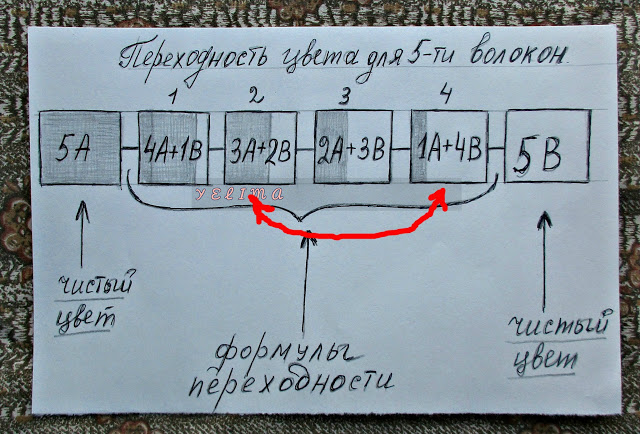 Переходность цвета для 5-ти волокон.
1 2 3 4
5А 4А+1В 3А+2В 2А+3В 1А+4В 5В
YELIMA
чистый
цвет
формулы
переходности
чистый
цвет